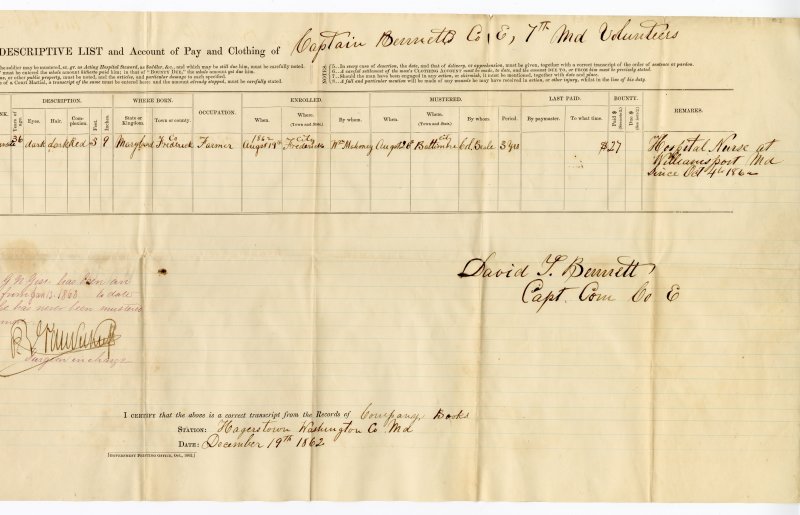 DESCRIPTIVE LIST and Account of Pay and Clothing of Captain Bennetts Co E, 7th Md Voluntiers
the soldier may be mustered, as, gr. as Acting Hospital Steward, as Saddler, &c., and which may be still due him, must be carefully noted.
must be entered the whole amount hitherto paid him; in that of "BOUNTY DUE," the whole amount yet due him.
or other public property, must be noted, and the articles, and particular damage to each specified.
of a Court Martial, a transcript of the same must be entered here; and the amount already stopped, must be carefully stated.
NOTES.
5.—In every case of desertion, the date, and that of delivery, or apprehension, must be given, together with a correct transcript of the order of sentence or pardon.
6.—A careful settlement of the man's CLOTHING ACCOUNT must be made, to date, and the amount DUE TO, or FROM him must be precisely stated.
7.—Should the man have been engaged in any action, or skirmish, it must be mentioned, together with date and place.
8.—A full and particular mention will be made of any wounds he may have received in action, or other injury, whilst in the line of his duty.
DESCRIPTION. WHERE BORN. OCCUPATION. ENROLLED. MUSTERED. LAST PAID. BOUNTY. REMARKS.
Years of age. Eyes. Hair. Complexion. Feet. Inches. State or Kingdom. Town or county. When. Where. (Town and State.) By whom. When. Where. (Town and State.) By whom Period. By paymaster. To what time. Paid $ Due $
36 dark dark Red 5 9 Maryland Frederick Co Farmer 1862 Augst 14th Frederick City Wm Mahoney Augst 26 Baltimore City Col. Seale 3 yrs $27 Hospital Nurse at
Williamsport Md
since Oct 4th 1862
David T. Bennett
Capt. Com Co E
has been an
from Jan 13. 1863 to date
he has never been mustered
Surgeon in charge
I CERTIFY that the above is a correct transcript from the Records of Company Books
STATION: Hagerstown Washington Co Md
DATE: December 19th 1862
[GOVERNMENT PRINTING OFFICE, Oct., 1862.]